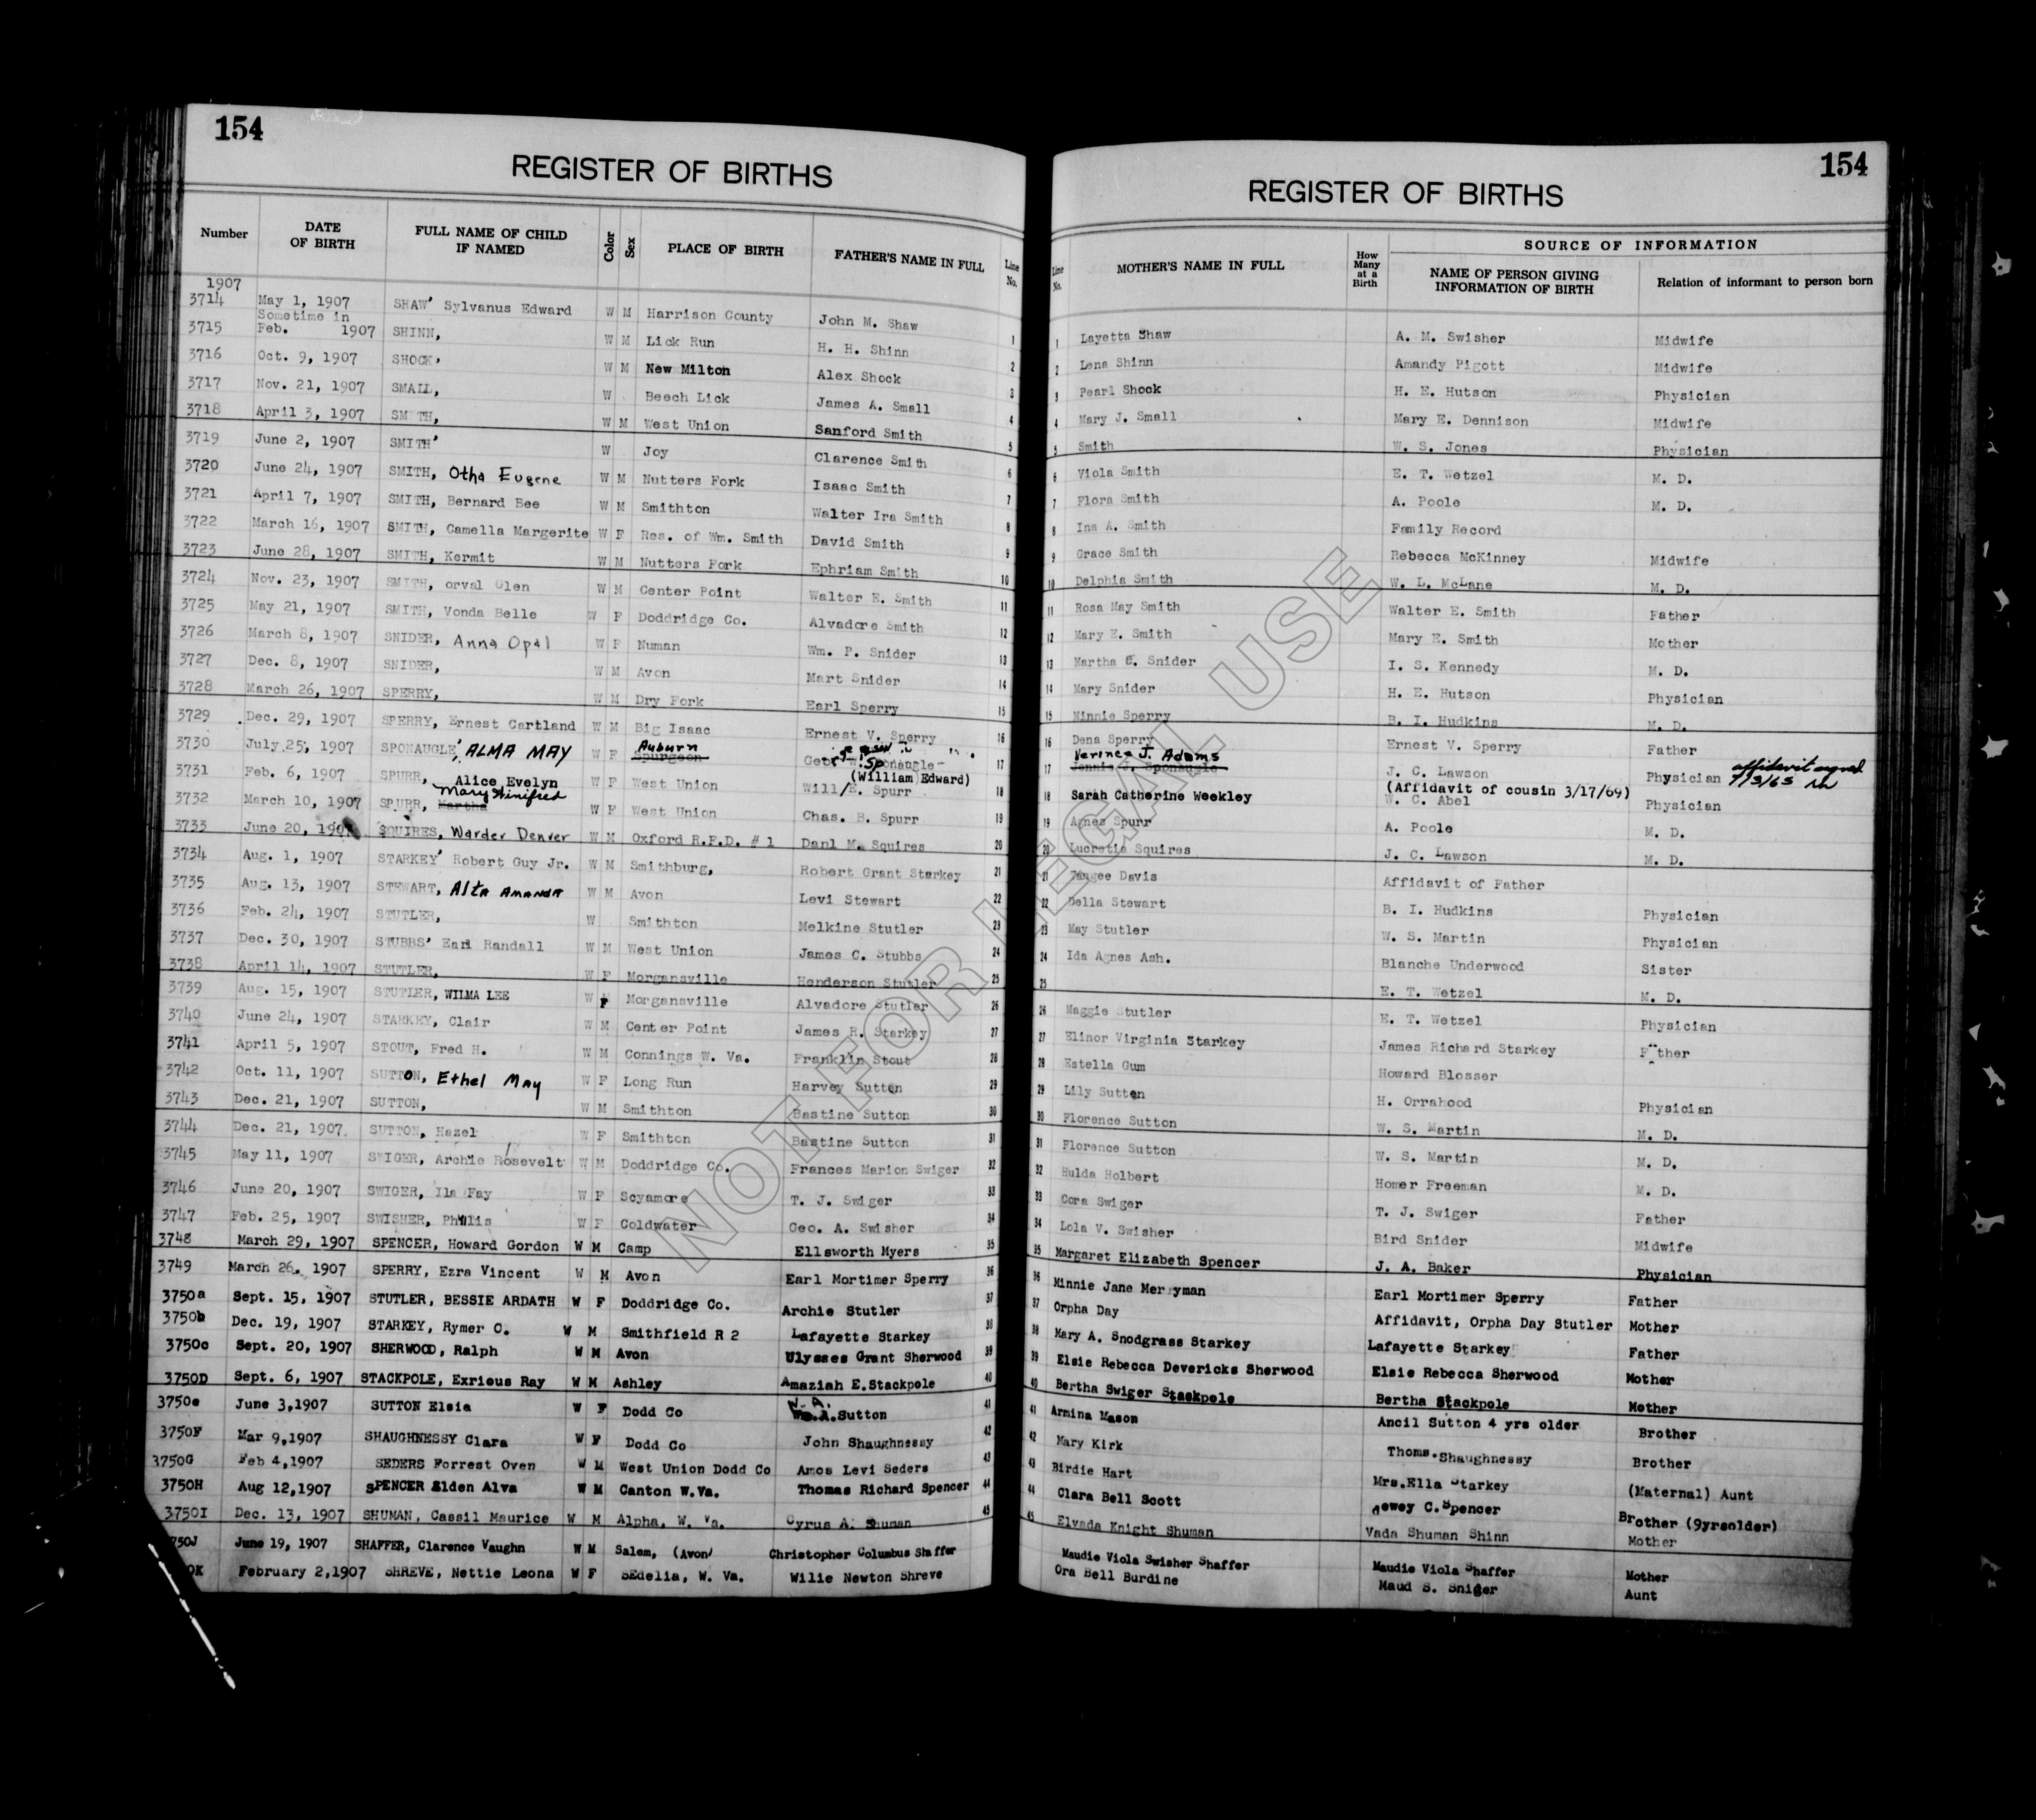 154
REGISTER OF BIRTHS
Number DATE OF BIRTH FULL NAME OF CHILD IF NAMED Color Sex PLACE OF BIRTH FATHER'S NAME IN FULL Line No.
1907
3714 May 1, 1907 SHAW' Sylvanus Edward W M Harrison County John M. Shaw 1
3715 Sometime in Feb. 1907 SHINN, W M Lick Run H. H. Shinn 2
3716 Oct. 9, 1907 SHOCK' W M New Milton Alex Shock 3
3717 Nov. 21, 1907 SMALL, W Beech Lick James A. Small 4
3718 April 3, 1907 SMITH, W M West Union Sanford Smith 5
3719 June 2, 1907 SMITH' W Joy Clarence Smith 6
3720 June 24, 1907 SMITH, Otha Eugene W M Nutters Fork Isaac Smith 7
3721 April 7, 1907 SMITH, Bernard Bee W M Smithton Walter Ira Smith 8
3722 March 16, 1907 SMITH, Camella Margerite W F Res. of Wm. Smith David Smith 9
3723 June 28, 1907 SMITH, Kermit W M Nutters Fork Ephriam Smith 10
3724 Nov. 23, 1907 SMITH, orval Glen W M Center Point Walter E. Smith 11
3725 May 21, 1907 SMITH, Vonda Belle W F Doddridge Co. Alvadore Smith 12
3726 March 8, 1907 SNIDER, Anna Opal W F Numan Wm. P. Snider 13
3727 Dec. 8, 1907 SNIDER, W M Avon Mart Snider 14
3728 March 26, 1907 SPERRY, W M Dry Fork Earl Sperry 15
3729 Dec. 29, 1907 SPERRY, Ernest Cartland W M Big Isaac Ernest V. Sperry 16
3730 July 25, 1907 SPONAUGLE, ALMA MAY W F Auburn Spurgeon Geo. W. Sponaugle 17
3731 Feb. 6, 1907 SPURR, Alice Evelyn W F West Union Will/E. Spurr (William Edward) 18
3732 March 10, 1907 SPURR, Martha Mary Winifred W F West Union Chas. B. Spurr 19
3733 June 20, 1907 SQUIRES, Warder Denver W M Oxford R.F.D. # 1 Danl M. Squires 20
3734 Aug. 1, 1907 STARKEY' Robert Guy Jr. W M Smithburg, Robert Grant Starkey 21
3735 Aug. 13, 1907 STEWART, Alta Amanda W M Avon Levi Stewart 22
3736 Feb. 24, 1907 STUTLER, W Smithton Melkine Stutler 23
3737 Dec. 30, 1907 STUBBS' Earl Randall W M West Union James C. Stubbs 24
3738 April 14, 1907 STUTLER, W F Morgansville Henderson Stutler 25
3739 Aug. 15, 1907 STUTLER, WILMA LEE W F Morgansville Alvadore Stutler 26
3740 June 24, 1907 STARKEY, Clair W M Center Point James R. Starkey 27
3741 April 5, 1907 STOUT, Fred H. W M Connings W. Va. Franklin Stout 28
3742 Oct. 11, 1907 SUTTON, Ethel May W F Long Run Harvey Sutton 29
3743 Dec. 21, 1907 SUTTON, W M Smithton Bastine Sutton 30
3744 Dec. 21, 1907. SUTTON, Hazel W F Smithton Bastine Sutton 31
3745 May 11, 1907 SWIGER, Archie Rosevelt W M Doddridge Co. Frances Marion Swiger 32
3746 June 20, 1907 SWIGER, Ila Fay W F Scyamore T. J. Swiger 33
3747 Feb. 25, 1907 SWISHER, Phyllis W F Coldwater Geo. A. Swisher 34
3748 March 29, 1907 SPENCER, Howard Gordon W M Camp Ellsworth Myers 35
3749 March 26. 1907 SPERRY, Ezra Vincent W M Avon Earl Mortimer Sperry 36
3750a Sept. 15, 1907 STUTLER, BESSIE ARDATH W F Doddridge Co. Archie Stutler 37
3750b Dec. 19, 1907 STARKEY, Rymer O. W M Smithfield R 2 Lafayette Starkey 38
3750c Sept. 20, 1907 SHERWOOD, Ralph W M Avon Ulysses Grant Sherwood 39
3750D Sept. 6, 1907 STACKPOLE, Exrieus Ray W M Ashley Amaziah E.Stackpole 40
3750e June 3,1907 SUTTON Elsia W F Dodd Co W.A. Sutton 41
3750F Mar 9,1907 SHAUGHNESSY Clara W F Dodd Co John Shaughnessy 42
3750G Feb 4,1907 SEDERS Forrest Oven W M West Union Dodd Co Amos Levi Seders 43
3750H Aug 12,1907 SPENCER Elden Alva W M Canton W.Va. Thomas Richard Spencer 44
3750I Dec. 13, 1907 SHUMAN, Cassil Maurice W M Alpha, W. Va. Cyrus A. Shuman 45
750J June 19, 1907 SHAFFER, Clarence Vaughn W M Salem, (Avon) Christopher Columbus Shaffer
0K February 2,1907 SHREVE, Nettie Leona W F SEdelia, W. Va. Wilie Newton Shreve
154
REGISTER OF BIRTHS
Line No. MOTHER'S NAME IN FULL How Many at a Birth SOURCE OF INFORMATION
NAME OF PERSON GIVING INFORMATION OF BIRTH Relation of informant to person born
1 Layetta Shaw A. M. Swisher Midwife
2 Lena Shinn Amandy Pigott Midwife
3 Pearl Shock H. E. Hutson Physician
4 Mary J. Small Mary E. Dennison Midwife
5 Smith W. S. Jones Physician
6 Viola Smith E. T. Wetzel M. D.
7 Flora Smith A. Poole M. D.
8 Ina A. Smith Family Record
9 Grace Smith Rebecca McKinney Midwife
10 Delphia Smith W. L. McLane M. D.
11 Rosa May Smith Walter E. Smith Father
12 Mary E. Smith Mary E. Smith Mother
13 Martha C. Snider I. S. Kennedy M. D.
14 Mary Snider H. E. Hutson Physician
15 Minnie Sperry B. I. Hudkins M. D.
16 Dena Sperry Ernest V. Sperry Father
17 Verinca J. Adams Jennie C. Sponaugle J. C. Lawson Physician affidavit signed 7/3/63
18 Sarah Catherine Weekley (Affidavit of cousin 3/17/69) W. C. Abel Physician
19 Agnes Spurr A. Poole M. D.
20 Lucretia Squires J. C. Lawson M. D.
21 Tangee Davis Affidavit of Father
22 Della Stewart B. I. Hudkins Physician
23 May Stutler W. S. Martin Physician
24 Ida Agnes Ash. Blanche Underwood Sister
25 E. T. Wetzel M. D.
26 Maggie Stutler E. T. Wetzel Physician
27 Elinor Virginia Starkey James Richard Starkey Father
28 Estella Gum Howard Blosser
29 Lily Sutton H. Orrahood Physician
30 Florence Sutton W. S. Martin M. D.
31 Florence Sutton W. S. Martin M. D.
32 Hulda Holbert Homer Freeman M. D.
33 Cora Swiger T. J. Swiger Father
34 Lola V. Swisher Bird Snider Midwife
35 Margaret Elizabeth Spencer J. A. Baker Physician
36 Minnie Jane Merryman Earl Mortimer Sperry Father
37 Orpha Day Affidavit, Orpha Day Stutler Mother
38 Mary A. Snodgrass Starkey Lafayette Starkey Father
39 Elsie Rebecca Devericks Sherwood Elsie Rebecca Sherwood Mother
40 Bertha Swiger Stackpole Bertha Stackpole Mother
41 Armina Mason Ancil Sutton 4 yrs older Brother
42 Mary Kirk Thoms.Shaughnessy Brother
43 Birdie Hart Mrs.Ella Starkey (Maternal) Aunt
44 Clara Bell Scott Dewey C.Spencer Brother (9yrsolder)
45 Elvada Knight Shuman Vada Shuman Shinn Mother
Maudie Viola Swisher Shaffer Maudie Viola Shaffer Mother
Ora Bell Burdine Maud S. Snider Aunt
NOT FOR LEGAL USE